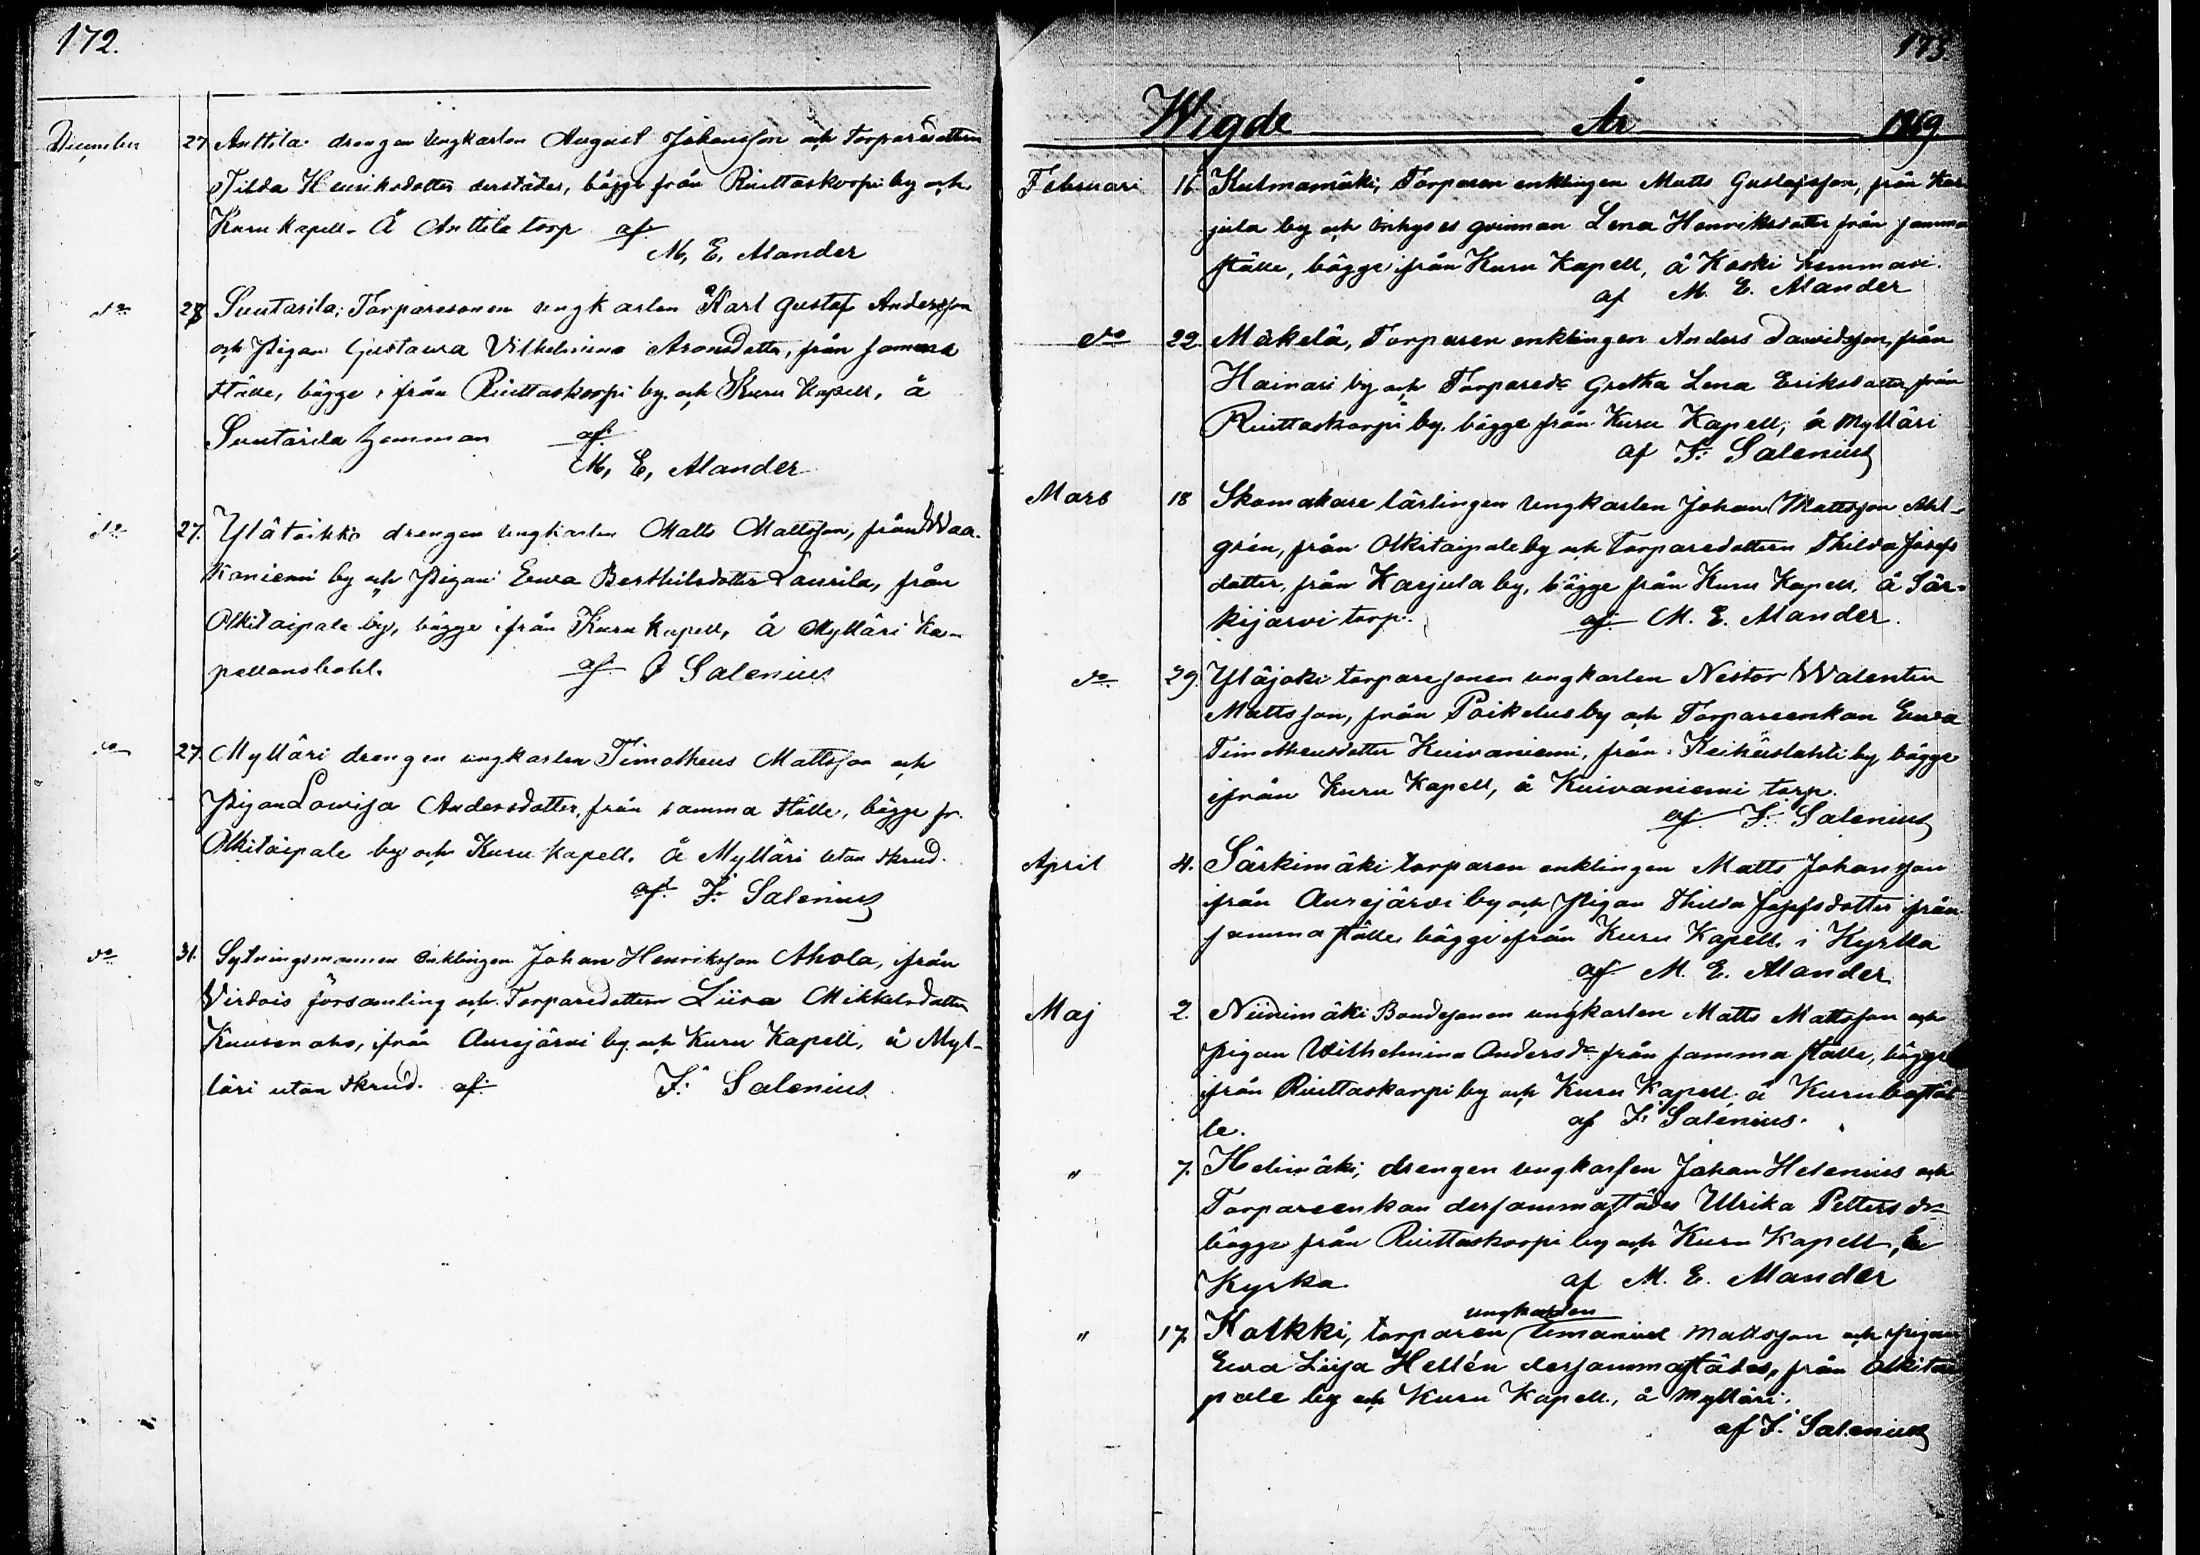 172.
December 27 Anttila drengen ungkarlen August Johansson och torparedottren
Tilda Henriksdotter derstädes, bägge från Riuttaskorpi by och
Kuru kapell. Å Anttila torp af
M. E. Alander
do 28 Suutarila; Torparesonen ungkarlen Karl Gustaf Andersson
och Pigan Gustawa Vilhelmina Aronsdotter, från samma
ställe, bägge ifrån Riuttaskorpi by och Kuru Kapell, å
Suutarila hemman af
M. E. Alander
do 27. Ylätoikko drengen ungkarlen Matts Mattsson, från Waa-
kaniemi by och Pigan Ewa Berthilsdotter Laurila, från
Olkitaipale by, bägge ifrån Kuru kapell, å Mylläri Ka-
pellansbohl. af F Salenius
do 27. Mylläri drengen ungkarlen Timotheus Mattsson och
Pigan Lowisa Andersdotter, från samma ställe, bägge fr.
Olkitaipale by och Kuru kapell. å Mylläri utan skrud.
af F. Salenius
do 31. Sytningsmannen Enklingen Johan Henriksson Ahola, ifrån
Virdois församling och Torparedottern Liisa Mikkelsdotter
Kuusenaho, ifrån Aurejärvi by och Kuru Kapell, å Myl-
läri utan skrud. af F. Salenius
173.
Wigde År 1869
Februari 16 Kulmamäki, Torparen enklingen Matts Gustafsson, från Kar-
jula by och Inhyses qvinnan Lena Henriksdotter från samma
ställe, bägge ifrån Kuru Kapell, å Koski hemman.
af M. E. Alander
do 22. Mäkelä, Torparen enklingen Anders Davidsson, från
Hainari by och Torpareds Gretha Lena Eriksdotter från
Riuttaskorpi by. bägge från Kuru Kapell, å Mylläri
af F. Salenius
Mars 18 Skomakare lärlingen ungkarlen Johan Mattsson Ahl-
grén, från Olkitaipale by och torparedottern Thilda Josefs
dotter, från Karjula by, bägge från Kuru Kapell, å Sär-
kijärvi torp. af M. E. Alander.
do 29. Yläjoki torparesonen ungkarlen Nestor Walentin
Mattsson, från Poikelus by och Torpareenkan Ewa
Timotheusdotter Kuivaniemi, från Keihäslahti by bägge
ifrån Kuru Kapell, å Kuivaniemi torp.
af F. Salenius
April 4. Särkimäki torparen enklingen Matts Johansson
ifrån Aurejärvi by och Pigan Thilda Josefsdotter från
samma ställe, bägge ifrån Kuru Kapell. i Kyrka
af M. E. Alander
Maj 2. Niinimäki Bondesonen ungkarlen Matts Mattsson och
pigan Wilhelmina Andersdr från samma ställe, bägge
ifrån Riuttaskorpi by och Kuru Kapell, å Kuru bostäl-
le. af F. Salenius.
" 7. Helimäki, drengen ungkarlen Johan Helenius och
Torpareenkan dersammastädes Ulrika Petters dr
bägge från Riuttaskorpi by och Kuru Kapell,
Kyrka af M. E. Alander
ungkarlen
" 17. Kolkki, torparen Emanuel Mattsson och pigan
Ewa Liisa Hellén dersammastädes, från Olkitai
pale by och Kuru Kapell., å Mylläri.
af F. Salenius